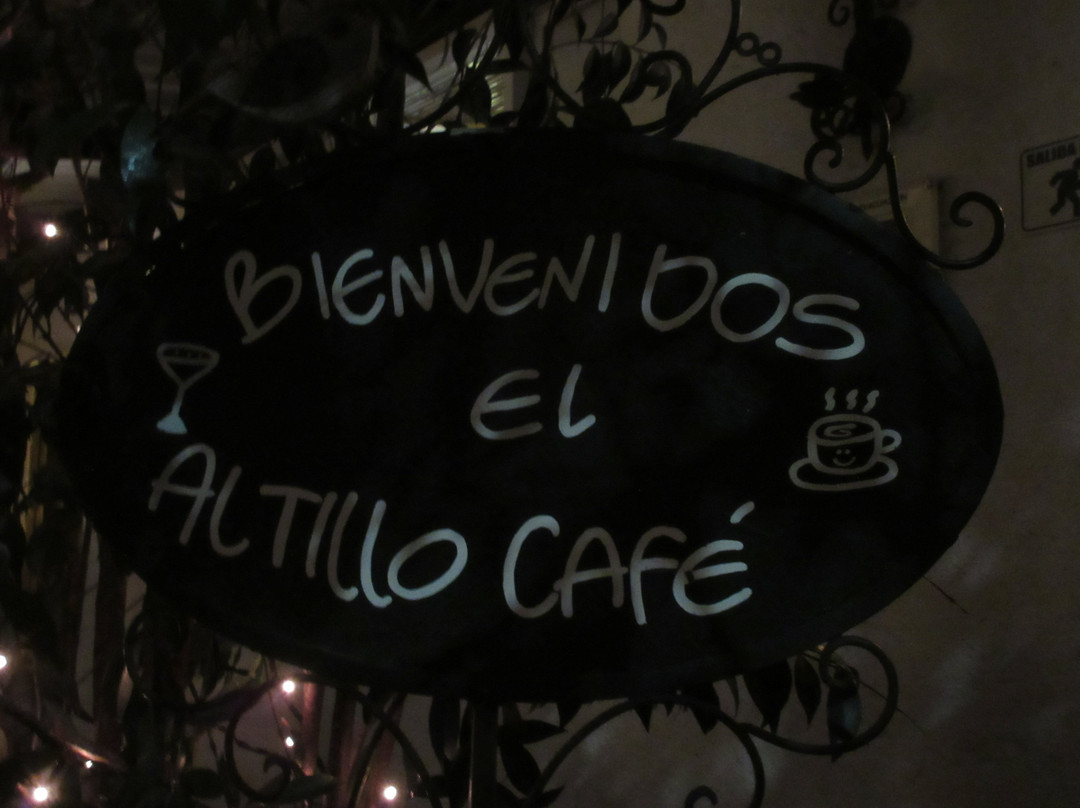 BIENVENIDOS
EL
ALTILLO CAFÉ
SALIDA